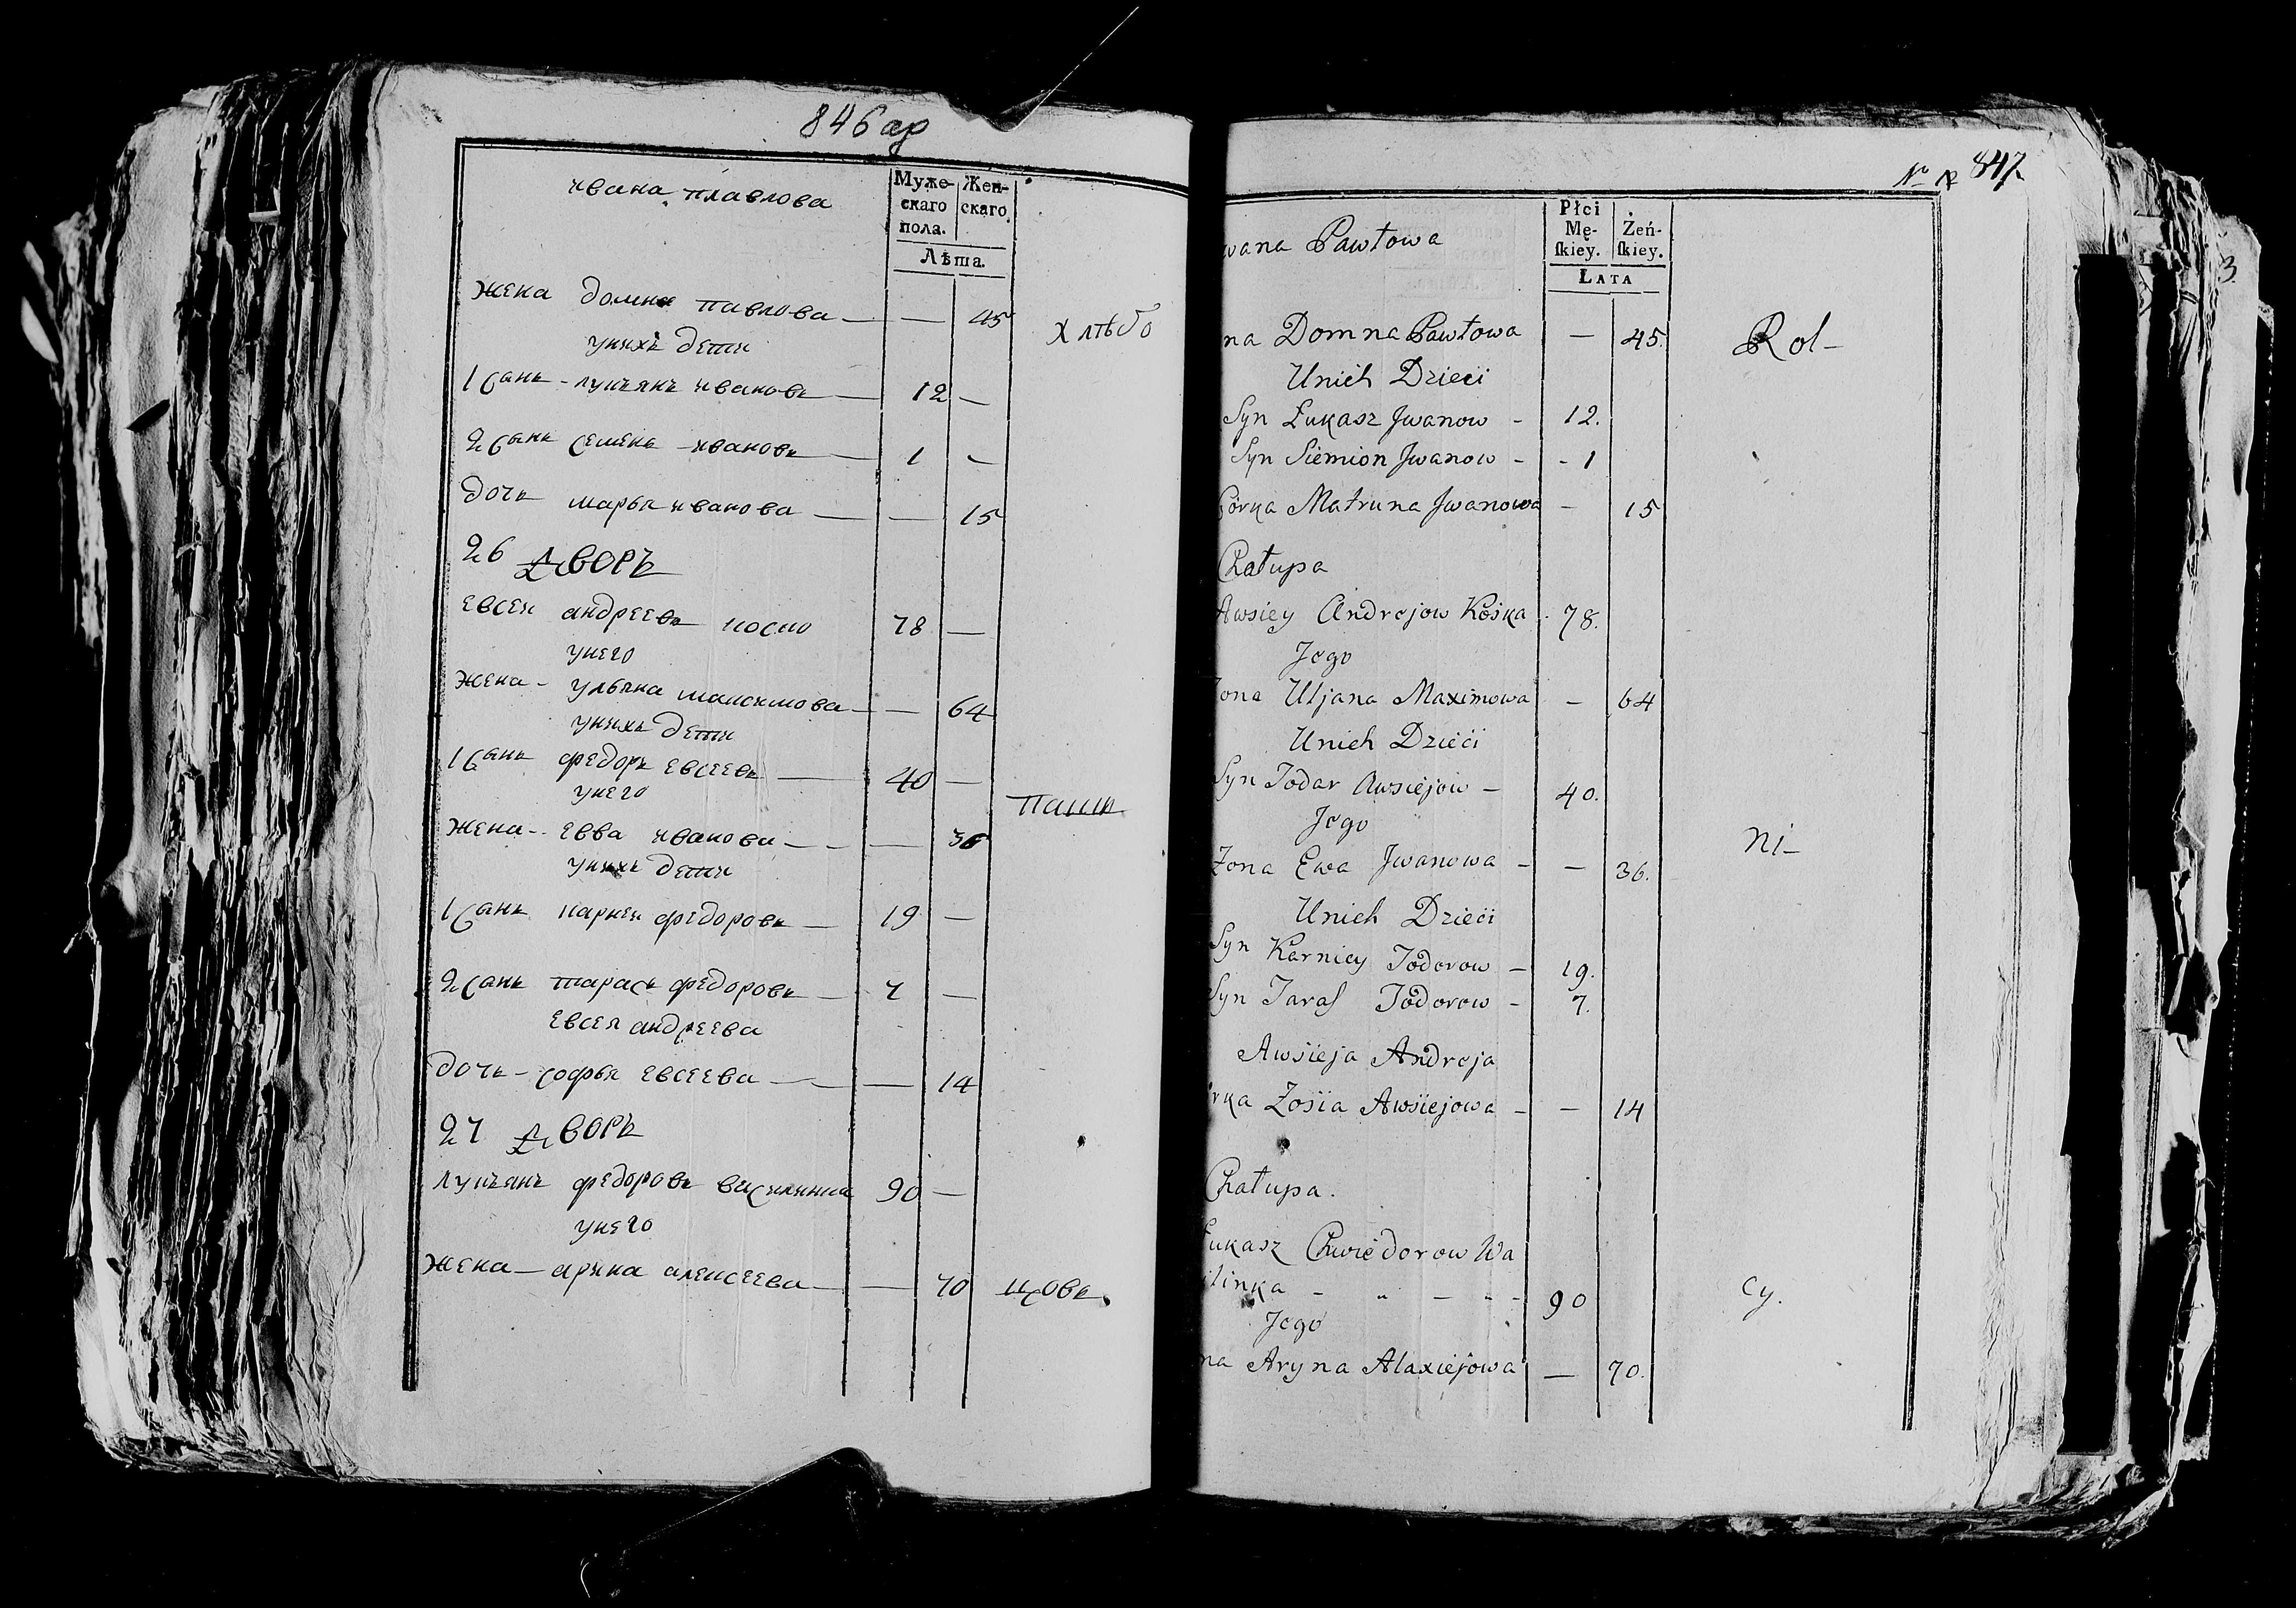 846 ар
Муже-
скаго
пола.
Жен-
скаго.
Лѣта.
ивана павлова
жена домна павлова — — 45
унихъ дети
хлѣбо
1 Сынъ - лукъянъ ивановъ — 12 —
2 Сынъ семенъ - ивановъ — 1 —
дочь марья иванова — — 15
26 Дворъ
евсеи андреевъ коско 78 —
унего
жена - ульяна максимова — — 64
унихъ дети
1 Сынъ федоръ евсеевъ — 40 —
унего
паши
жена - евва иванова — — — 36
унихъ дети
1 Сынъ карнеи федоровъ — 19 —
2 Сынъ тарасъ федоровъ — 7 —
евсея андреева
дочь - софья евсеева — — 14
27 Дворъ
лукъянъ федоровъ 90 —
унего
жена — арина алексеева — — 70
цовъ
847
№
Płci
Mę-
ſkiey.
Żeń-
ſkiey.
Lata
wana Pawłowa
na Domna Pawłowa — 45.
Rol-
Unich Dzieci
Syn Łukasz Jwanow - 12.
Syn Siemion Jwanow - - 1
Córka Matruna Jwanowa - 15
Chałupa
Awsiey Andrejow Kośka - 78.
Jego
Żona Uljana Maximowa - 64
Unich Dzieci
Syn Todar Awsiejow - 40.
Jego
Ni-
Żona Ewa Jwanowa - - 36.
Unich Dzieci
Syn Karniey Todorow - 19.
Syn Taras Todorow - 7.
Awsieja Andreja
rka Zosia Awsiejowa - - 14
Chałupa.
Łukasz Chwiedorow Wa
silinka - " - - - 90
Cy.
Jego
na Aryna Alaxiejowa — 70.
3.